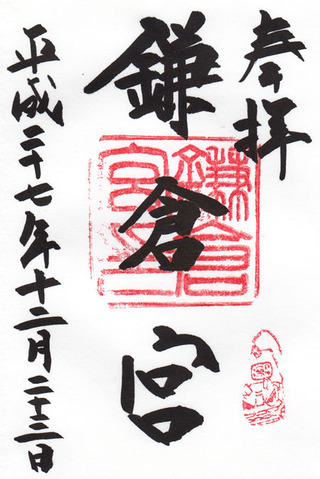 奉拝
鎌倉宮
平成二十七年十二月二十三日
鎌倉
宮印